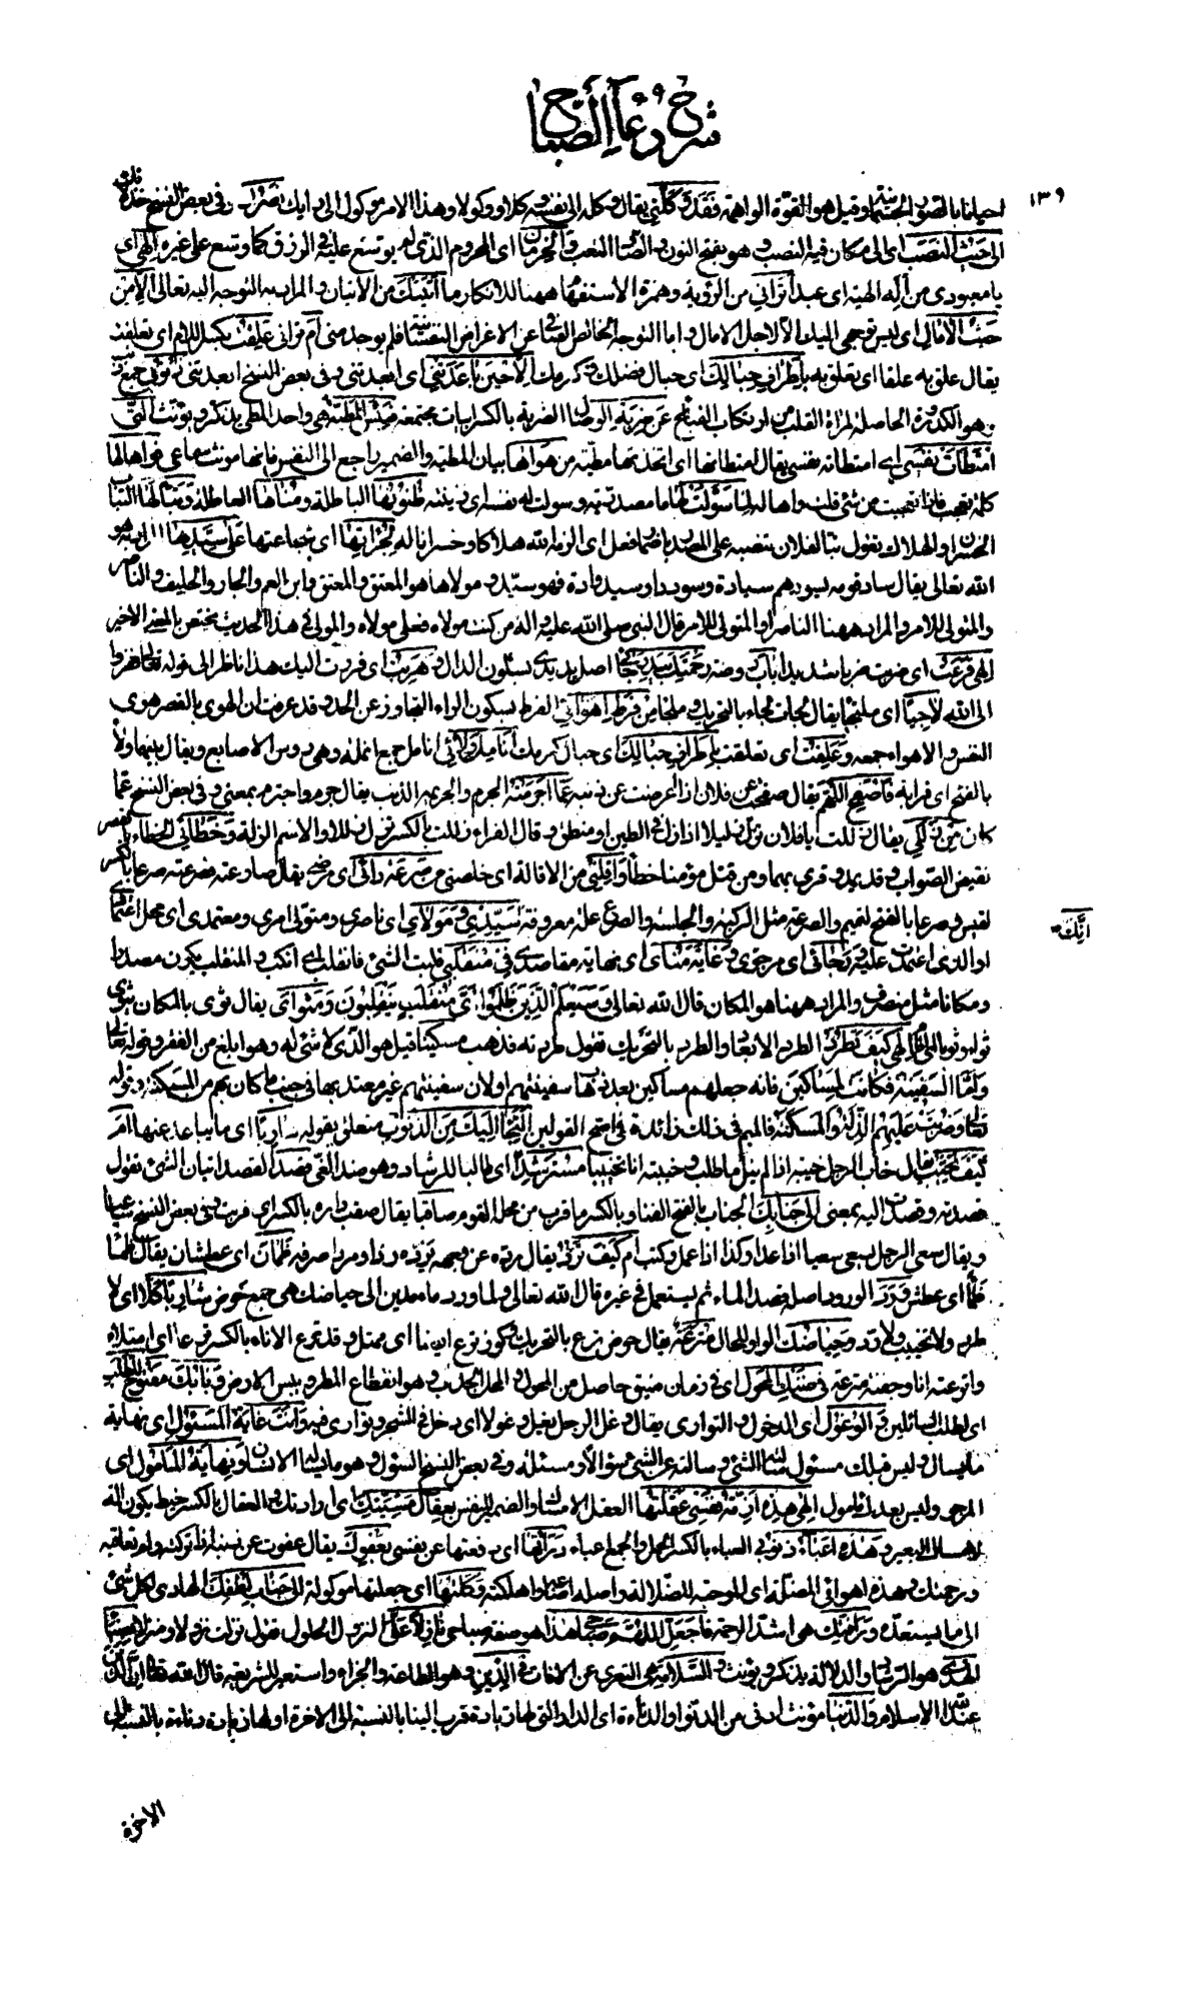 شرح دعاء الصباح
١٣٩
احيانا بالصور الحسنة وقيل هو القوة الواهمة فَقَدْ وَكَلَنى يقال وكله الى نفسه وكلا ووكولا وهذا الامر موكول الى رايك نَصْرُكَ وفى بعض النسخ خذلانك
الى حَيْثُ النَّصَبِ اى الى مكان فيه النصب وهو بفتح النون والصاد التعب وَالْحِرْمانِ اى المحروم الذى لم يوسع عليه فى الرزق كما وسع على غيره اِلهى اى
يا معبودى من اَلِه الهية اى عبد اَتَرانى من الرؤية وهمزة الاستفهام ههنا للانكار ما اَتَيْتُكَ من الاتيان والمراد به التوجه اليه تعالى اِلّا مِنْ
حَيْثُ الْامالِ اى ليس توجهى اليك الا لاجل الامال واما التوجه الخالص الصافى عن الاغراض النفسانية فلم يوجد منى اَمْ ترانى عَلِقْتُ بكسر اللام اى تعلقت
يقال علق به علقا اى تعلق به بِاَطْرافِ حِبالِكَ اى حبال فضلك وكرمك اِلّا حينَ باعَدَتْنى اى ابعدتنى وفى بعض النسخ ابعدتنى ذُنُوبى جمع ذنب
وهو الكدورة الحاصلة لمراة القلب من ارتكاب القبائح عَنْ ضَرْبَةِ الْوِصالِ الضربة بالكسر ابيات مجتمعة فَبِئْسَ الْمَطِيَّةُ هى واحد المطى يذكر ويونث الَّتى
امْتَطَأَتْ نَفْسى اى امتطاته نفسى يقال امتطاتها اى اتخذتها مطية مِنْ هَواها بيان للمطية والضمير راجع الى النفس فانها مونث سماعى فَواهًا لَها
كلمة تعجب فاذا تعجبت من شئ قلت واها له لِما سَوَّلَتْ لَها ما مصدرية وسولت له نفسه اى زينته ظُنُونُها الباطلة وَمُناهَا العاطلة وَتَبًّا لَها التباب
الخسران والهلاك تقول تبا لفلان تنصبه على المصدر باضمار فعل اى الزمه الله هلاكا وخسرانا له لِجُرْأَتِها اى شجاعتها عَلى سَيِّدِها المراد به هو
الله تعالى يقال ساد قومه يسودهم سيادة وسوددا وسيدودة فهو سيد وَمَوْلاها هو المعتق والمعتق وابن العم والجار والحليف والناصر
والمتولى للامر والمراد ههنا الناصر او المتولى للامر قال النبى صلى الله عليه واله من كنت مولاه فعلى مولاه والمولى فى هذا الحديث مختص بالمعنى الاخير
اِلهى قَرَعْتُ اى ضربت ضربا شديدا بابَ روضة رَحْمَتِكَ بِيَدِ رَجائى اصل يد يدى بسكون الدال وَهَرَبْتُ اى فررت اليك هذا ناظر الى قوله تعالى ففروا
الى الله لاجِئًا اى ملتجئا يقال لجات لجاء بالتحريك وملجا مِنْ فَرْطِ اَهْوائى الفرط بسكون الراء التجاوز عن الحد وقد عرفت ان الهوى بالقصر هوى
النفس والاهواء جمعه وَعَلِقْتُ اى تعلقت بِاَطْرافِ حِبالِكَ اى حبال كرمك اَنامِلَ وَلائى انامل جمع انملة وهى روس الاصابع ويقال بينهما ولاء
بالفتح اى قرابة فَاصْفَحِ اللّهُمَّ يقال صفحت عن فلان اذا اعرضت عن ذنبه عَمّا اَجْرَمْتُهُ الجرم والجريمة الذنب يقال جرم واجترم بمعنى وفى بعض النسخ عما
كان مِنْ زَلَلى يقال زللت يا فلان تزل زليلا اذا زل فى الطين او منطق وقال الفراء زللت بالكسر تزل زللا والاسم الزلة وَخَطائى الخطاء بالقصر
نقيض الصواب وقد يمد وقرى بهما ومن قتل مؤمنا خطأ وَاَقِلْنى من الاقالة اى خلصنى مِنْ صَرْعَةِ دائى اى مرضى يقال صارعته فصرعته صرعا بالكسر
لقيس وصرعا بالفتح لتميم والصرعة مثل الركبة والجلسة والصرع علة معروفة اِنَّكَ سَيِّدى وَمَوْلاىَ اى ناصرى ومتولى امرى ومعتمدى اى محل اعتمادى
او الذى اعتمدت عليه وَرَجائى اى مرجوى وَغايَةُ مُناىَ اى نهاية مقاصدى فى مُنْقَلَبى قلبت الشئ فانقلب اى انكب والمنقلب يكون مصدرا
ومكانا مثل منصرف والمراد ههنا هو المكان قال الله تعالى وَسَيَعْلَمُ الَّذينَ ظَلَمُوا اَىَّ مُنْقَلَبٍ يَنْقَلِبُونَ وَمَثْواىَ يقال ثوى بالمكان يثوى
ثواء وثويا اِلهى كَيْفَ تَطْرُدُ الطرد الابعاد والطرد بالتحريك تقول طردته فذهب مِسْكينًا قيل هو الذى لا شئ له وهو ابلغ من الفقر وقوله تعالى
وَاَمَّا السَّفينَةُ فَكانَتْ لِمَساكينَ فانه جعلهم مساكين بعد ذهاب سفينتهم او لان سفينتهم غير معتد بها فى جنب ما كان بهم من المسكنة وقوله
تعالى وَضُرِبَتْ عَلَيْهِمُ الذِّلَّةُ وَالْمَسْكَنَةُ فالميم فى ذلك زائدة فى اصح القولين اِلْتَجَأَ اِلَيْكَ مِنَ الذُّنُوبِ متعلق بقوله هارِبًا اى متباعدا عنها اَمْ
كَيْفَ تُخَيِّبُ يقال خاب الرجل خيبة اذا لم ينل ما طلب وخيبته انا تخييبا مُسْتَرْشِدًا اى طالبا للرشاد وهو ضد الغى قَصَدَ القصد اتيان الشئ تقول
قصدته وقصدت اليه بمعنى اِلى جَنابِكَ الجناب بالفتح الفناء وبالكسر ما قرب من محلة القوم صاقِبًا يقال صقبت داره بالكسر اى قربت وفى بعض النسخ ساعيا
ويقال سعى الرجل يسعى سعيا اذا عدا وكذا اذا عمل وكسب اَمْ كَيْفَ تَرُدُّ يقال رده عن وجهه يرده ردا ومردا صرفه ظَمْآنَ اى عطشان يقال ظمأ
ظمأ اى عطش وَرَدَ الورود اصله قصد الماء ثم يستعمل فى غيره قال الله تعالى ولما ورد ماء مدين اِلى حِياضِكَ هى جمع حوض شارِبًا كَلّا اى لا
طرد ولا تخييب ولا رد وَحِياضُكَ الواو للحال مُتْرَعَةٌ يقال حوض ترع بالتحريك وكوز ترع ايضا اى ممتلئ وقد ترع الاناء بالكسر ترعا اى امتلاء
واترعته انا وجفنة مترعة فى ضَنْكِ الْمُحُولِ اى فى زمان ضيق حاصل من المحول والمحل الجدب وهو انقطاع المطر ويبس الارض وَبابُكَ مَفْتُوحٌ لِلطَّلَبِ
اى لطلب السائلين وَالْوُغُولِ اى الدخول والتوارى يقال وغل الرجل يغل وغولا اى دخل فى الشجر وتوارى فيه وَاَنْتَ غايَةُ الْمَسْؤُلِ اى نهاية
ما يسال وليس قبلك مسئول سالته الشئ وسالته عن الشئ سؤالا ومسئلة وفى بعض النسخ السؤل وهو ما يساله الانسان وَنِهايَةُ الْمَأْمُولِ اى
المرجو وليس بعدك مامول اِلهى هذِهِ اَزِمَّةُ نَفْسى عَقَلْتُها العقل الامساك والضمير للنفس بِعِقالِ مَشِيَّتِكَ اى ارادتك والعقال بالكسر خيط يكون الة
لامساك البعير وَهذِهِ اَعْباءُ ذُنُوبى العباء بالكسر الحمل والجمع اعباء دَرَأْتُها اى دفعتها عن نفسى بِعَفْوِكَ يقال عفوت عن ذنبه اذا تركته ولم تعاقبه
ورحمتك وَهذِهِ اَهْوائىَ الْمُضِلَّةُ اى الموجبة للضلالة واصله اضاعه واهلكه وَكَلْتُها اى جعلتها موكولة اِلى جَنابِ لُطْفِكَ الهادى لكل شئ
الى ما يستعده وَرَأْفَتِكَ هى اشد الرحمة فَاجْعَلِ اللّهُمَّ صَباحى هذا هو صفة صباحى نازِلًا عَلَىَّ النزول الحلول تقول نزلت نزولا ومنزلا بِضِياءِ
الْهُدى هو الرشاد والدلالة يذكر ويونث وَالسَّلامَةِ هى التعرى عن الافات فِى الدّينِ وهو الطاعة والجزاء واستعير للشريعة قال الله تعالى ان الدين
عند الله الاسلام وَالدُّنْيا مؤنث ادنى من الدنو او الدناءة اى الدار التى لها زيادة قرب الينا بالنسبة الى الاخرة او لها زيادة دناءة بالنسبة الى
الاخرة